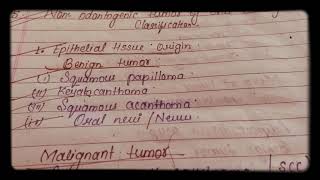 5. Non odontogenic tumor of
Classification
1. Epithelial tissue origin
Benign tumor:
(i) Squamous papilloma
(ii) Keratoacanthoma
(iii) Squamous acanthoma
(iv) Oral nevi / Nevus
Malignant tumor
(SCC)